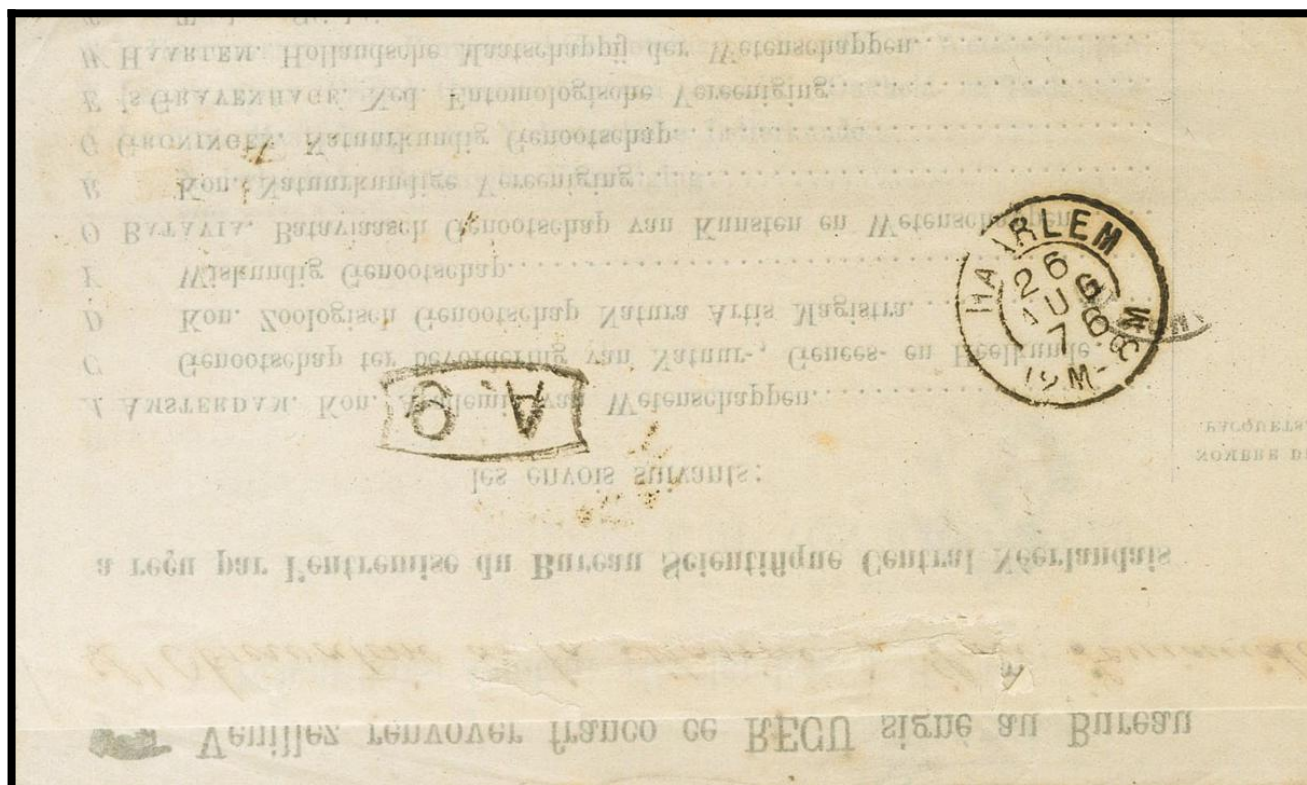 Veuillez renvoyer franco ce REÇU signé au Bureau
a reçu par l'entremise du Bureau Scientifique Central Néerlandais
les envois suivants:
NOMBRE
PACQUETS.
A AMSTERDAM. Kon. Akademie van Wetenschappen
C Genootschap ter bevordering van Natuur-, Genees- en Heelkunde.
D Kon. Zoologisch Genootschap Natura Artis Magistra
Wiskundig Genootschap
O BATAVIA. Bataviaasch Genootschap van Kunsten en Wetenschappen
R Kon. Natuurkundige Vereeniging
GRONINGEN. Natuurkundig Genootschap
E 'sGRAVENHAGE. Ned. Entomologische Vereeniging
W HAARLEM. Hollandsche Maatschappij der Wetenschappen
HAARLEM
26
AUG
76
12M-8M